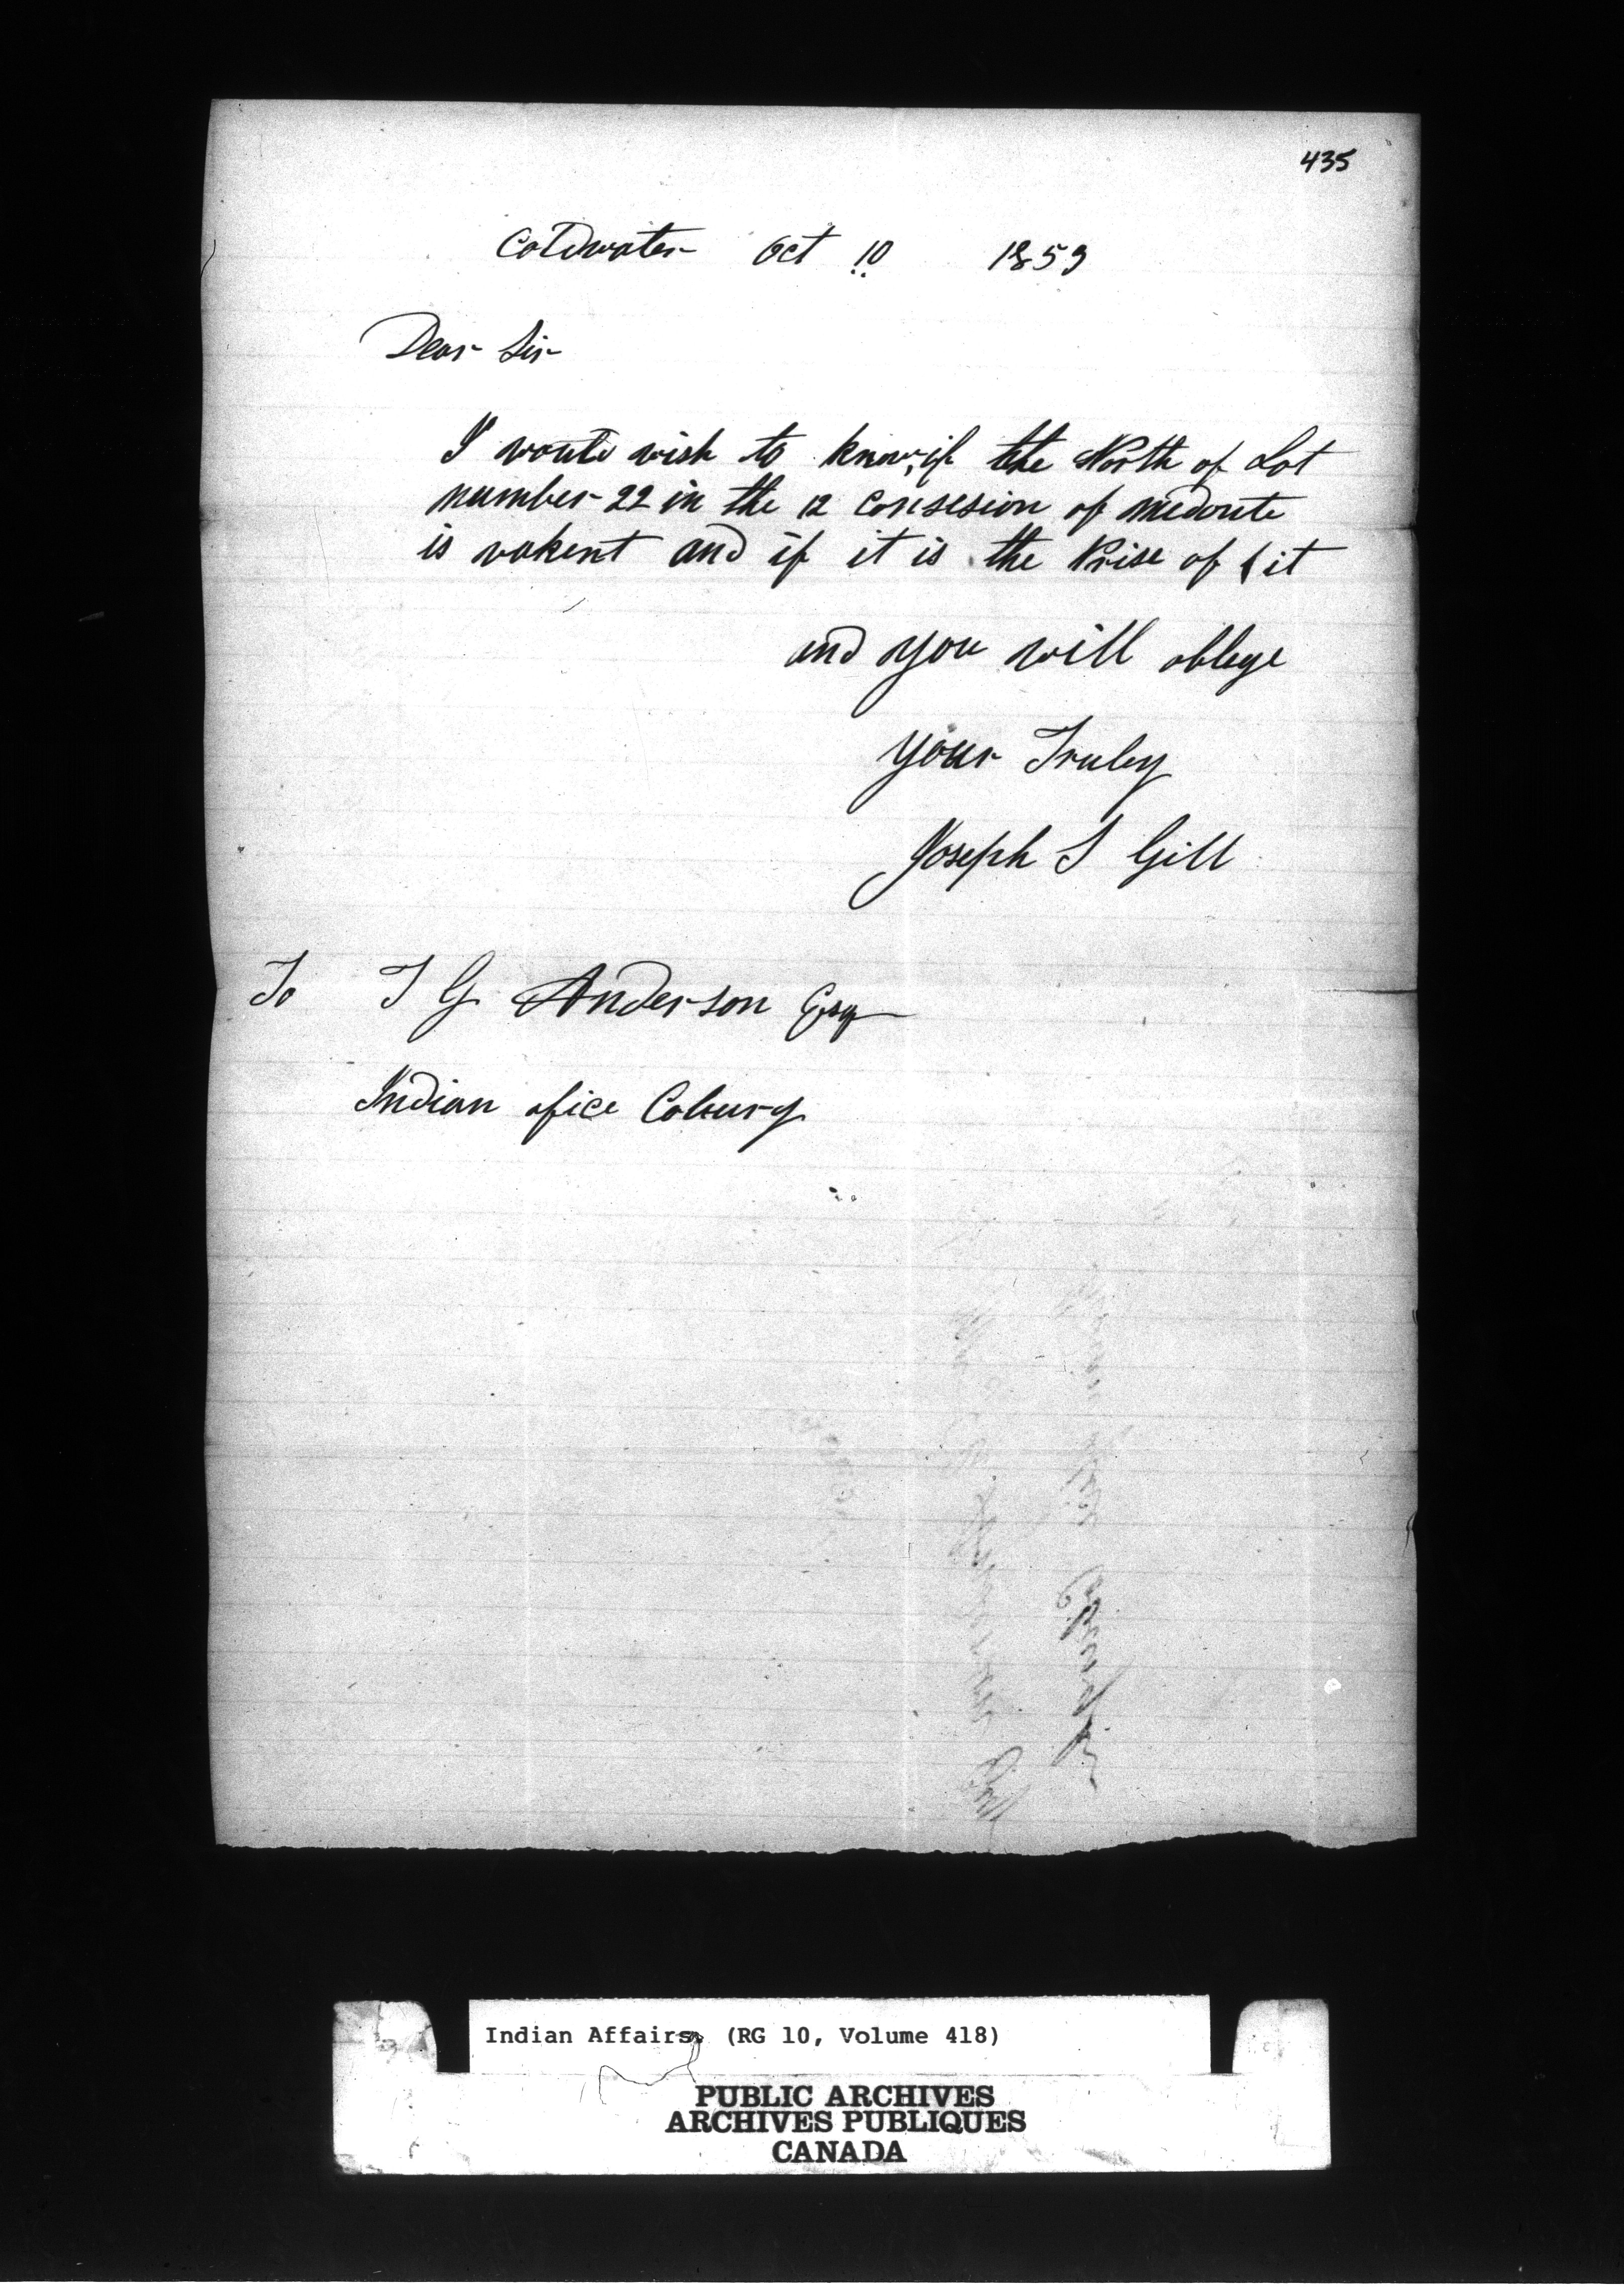 435
Coldwater Oct 10 1859
Dear Sir
I would wish to know, if the North of Lot
number 22 in the 12 consesion of medonte
is vakent and if it is the Prise of it
and you will oblege
your Truley
Joseph S Gill
To T G Anderson Esq
Indian ofice Coburg
Indian Affairs (RG 10, Volume 418)
PUBLIC ARCHIVES
ARCHIVES PUBLIQUES
CANADA